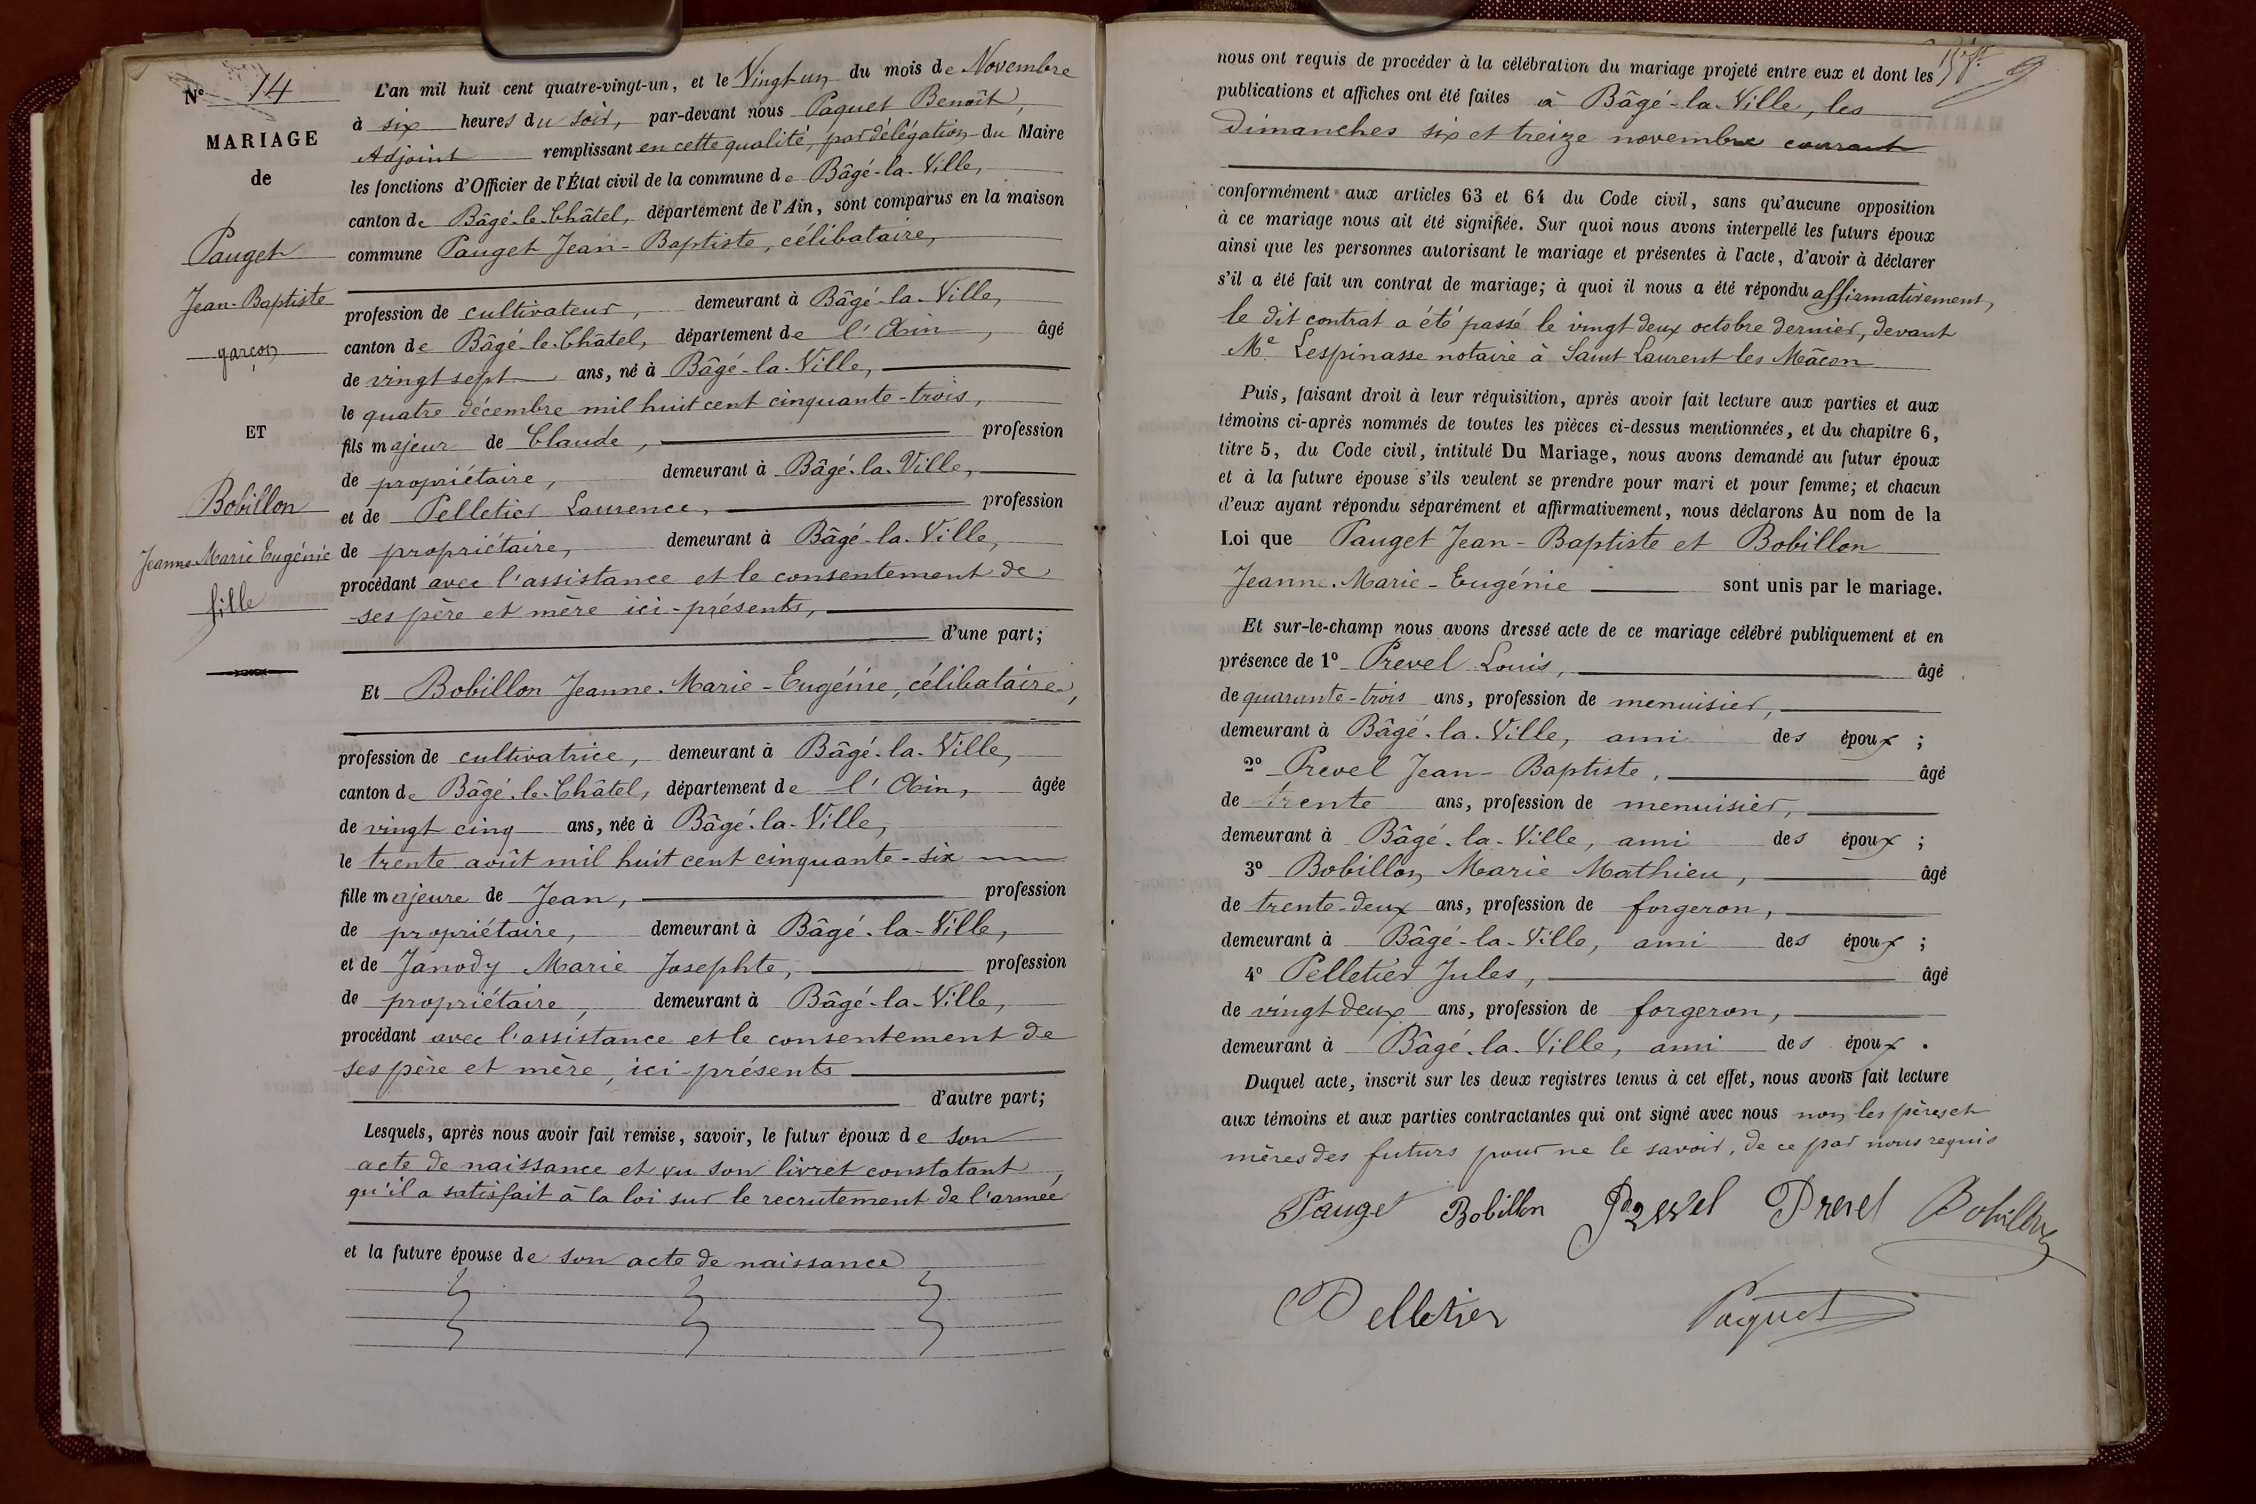 Nº 14
MARIAGE
de
Pauget
Jean-Baptiste
garçon
ET
Bobillon
Jeanne-Marie Eugénie
fille
L'an mil huit cent quatre-vingt-un, et le Vingt-un du mois de Novembre
à six heures du soir, par-devant nous Paquet Benoît,
Adjoint remplissant en cette qualité, par délégation du Maire
les fonctions d'Officier de l'État civil de la commune de Bâgé-la-Ville,
canton de Bâgé-le-Châtel, département de l'Ain, sont comparus en la maison
commune Pauget Jean-Baptiste, célibataire,
profession de cultivateur, demeurant à Bâgé-la-Ville,
canton de Bâgé-le-Châtel, département de l'Ain, âgé
de vingt sept ans, né à Bâgé-la-Ville,
le quatre décembre mil huit cent cinquante-trois,
fils majeur de Claude, profession
de propriétaire, demeurant à Bâgé-la-Ville,
et de Pelletier Laurence, profession
de propriétaire, demeurant à Bâgé-la-Ville,
procédant avec l'assistance et le consentement de
ses père et mère ici-présents,
d'une part;
Et Bobillon Jeanne-Marie-Eugénie, célibataire,
profession de cultivatrice, demeurant à Bâgé-la-Ville,
canton de Bâgé-le-Châtel, département de l'Ain, âgée
de vingt cinq ans, née à Bâgé-la-Ville,
le trente août mil huit cent cinquante-six
fille majeure de Jean, profession
de propriétaire, demeurant à Bâgé-la-Ville,
et de Janody Marie Josephte, profession
de propriétaire, demeurant à Bâgé-la-Ville,
procédant avec l'assistance et le consentement de
ses père et mère, ici-présents
d'autre part;
Lesquels, après nous avoir fait remise, savoir, le futur époux de son
acte de naissance et vu son livret constatant,
qu'il a satisfait à la loi sur le recrutement de l'armée
et la future épouse de son acte de naissance
nous ont requis de procéder à la célébration du mariage projeté entre eux et dont les
publications et affiches ont été faites à Bâgé-la-Ville, les
dimanches six et treize novembre courant
conformément aux articles 63 et 64 du Code civil, sans qu'aucune opposition
à ce mariage nous ait été signifiée. Sur quoi nous avons interpellé les futurs époux
ainsi que les personnes autorisant le mariage et présentes à l'acte, d'avoir à déclarer
s'il a été fait un contrat de mariage; à quoi il nous a été répondu affirmativement,
le dit contrat a été passé le vingt deux octobre dernier, devant
Me Lespinasse notaire à Saint Laurent les Mâcon
Puis, faisant droit à leur réquisition, après avoir fait lecture aux parties et aux
témoins ci-après nommés de toutes les pièces ci-dessus mentionnées, et du chapitre 6,
titre 5, du Code civil, intitulé Du Mariage, nous avons demandé au futur époux
et à la future épouse s'ils veulent se prendre pour mari et pour femme; et chacun
d'eux ayant répondu séparément et affirmativement, nous déclarons Au nom de la
Loi que Pauget Jean-Baptiste et Bobillon
Jeanne-Marie-Eugénie sont unis par le mariage.
Et sur-le-champ nous avons dressé acte de ce mariage célébré publiquement et en
présence de 1º Prevel Louis, âgé
de quarante-trois ans, profession de menuisier,
demeurant à Bâgé-la-Ville, ami des époux ;
2º Prevel Jean-Baptiste, âgé
de trente ans, profession de menuisier,
demeurant à Bâgé-la-Ville, ami des époux ;
3º Bobillon Marie Mathieu, âgé
de trente-deux ans, profession de forgeron,
demeurant à Bâgé-la-Ville, ami des époux ;
4º Pelletier Jules, âgé
de vingt deux ans, profession de forgeron,
demeurant à Bâgé-la-Ville, ami des époux.
Duquel acte, inscrit sur les deux registres tenus à cet effet, nous avons fait lecture
aux témoins et aux parties contractantes qui ont signé avec nous non les pères et
mères des futurs pour ne le savoir, de ce par nous requis
Pauget Bobillon Prevel Prevel Bobillon
Pelletier Paquet